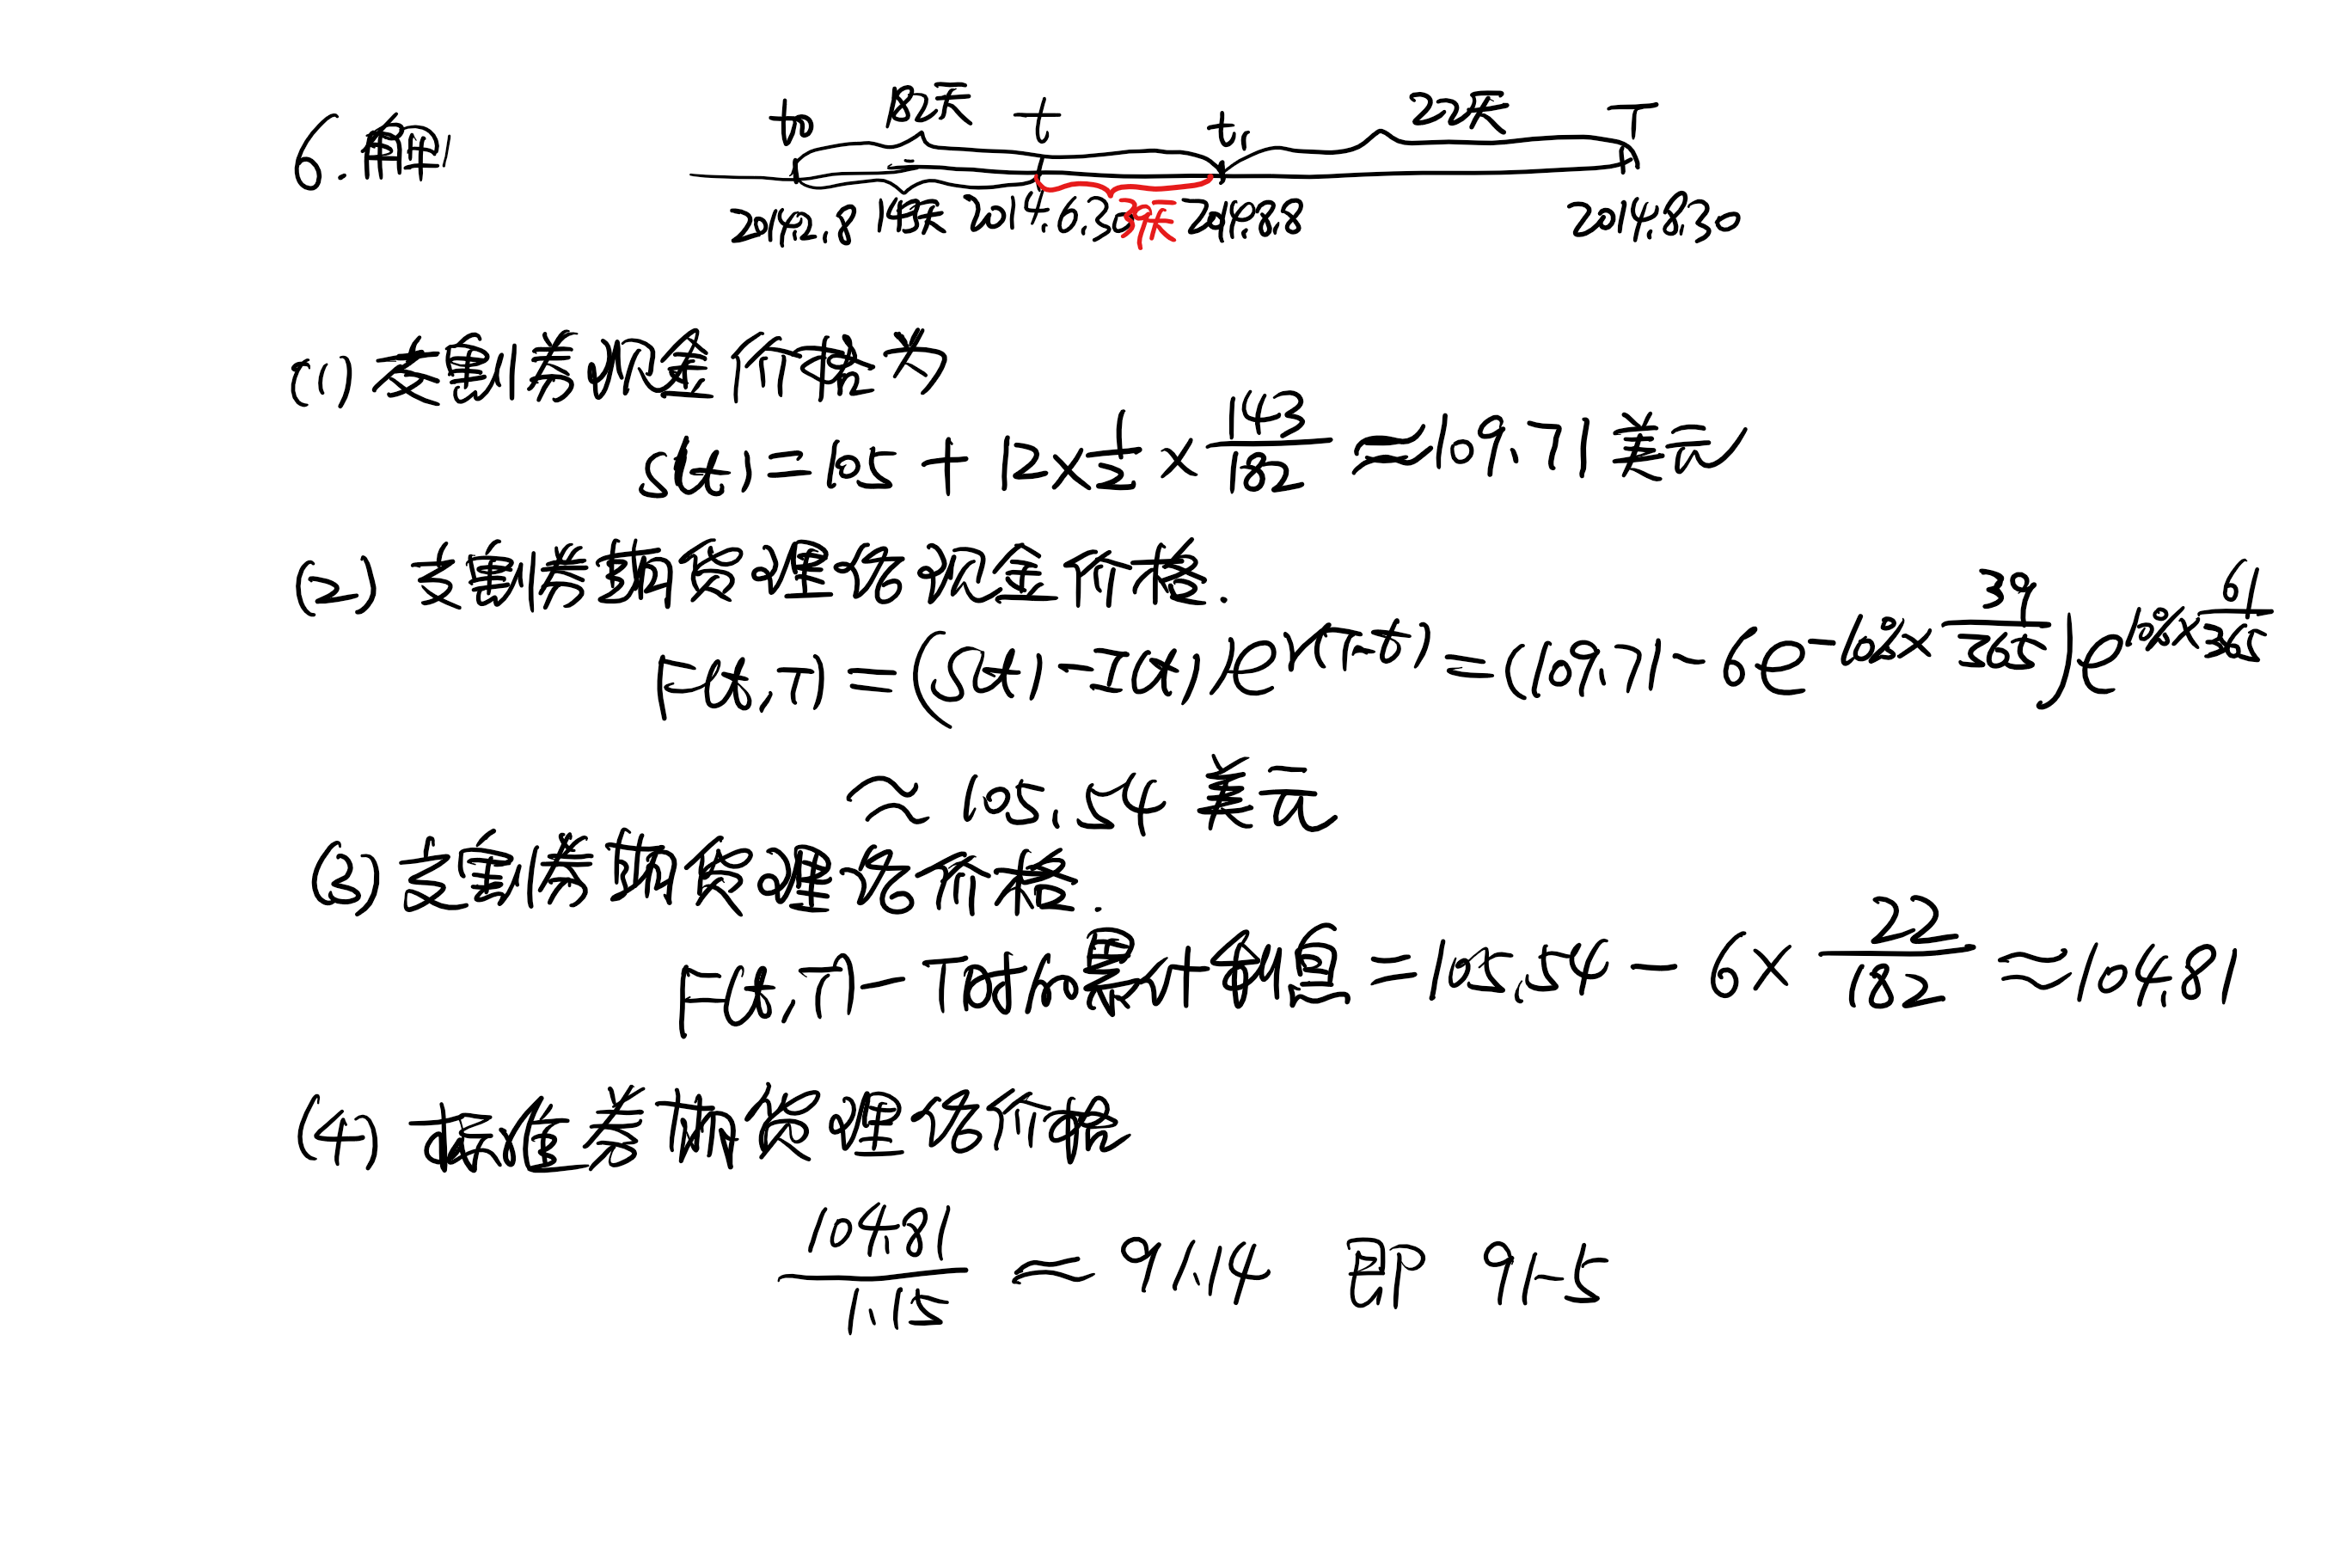 6.解
t₀ 182天 t t₁ 22天 T
2014.2.8 143天 2014.6.30 39天 2014.8.8 2014.8.30
(1) 交割券现金价格为
S(t)=105+12×1/2×143/182≈109.71美元
(2) 交割券期货理论现金价格.
F(t,T)=(S(t)-I(t))e^r(T-t)=(109.71-6e^-10%×39/365)e^10%×61/365
≈105.54美元
(3) 交割券期货理论价格.
F(t,T)-T时刻的累计利息=105.54-6×22/182≈104.81
(4) 标准券期货理论价格
104.81/1.15≈91.14 即 91-5